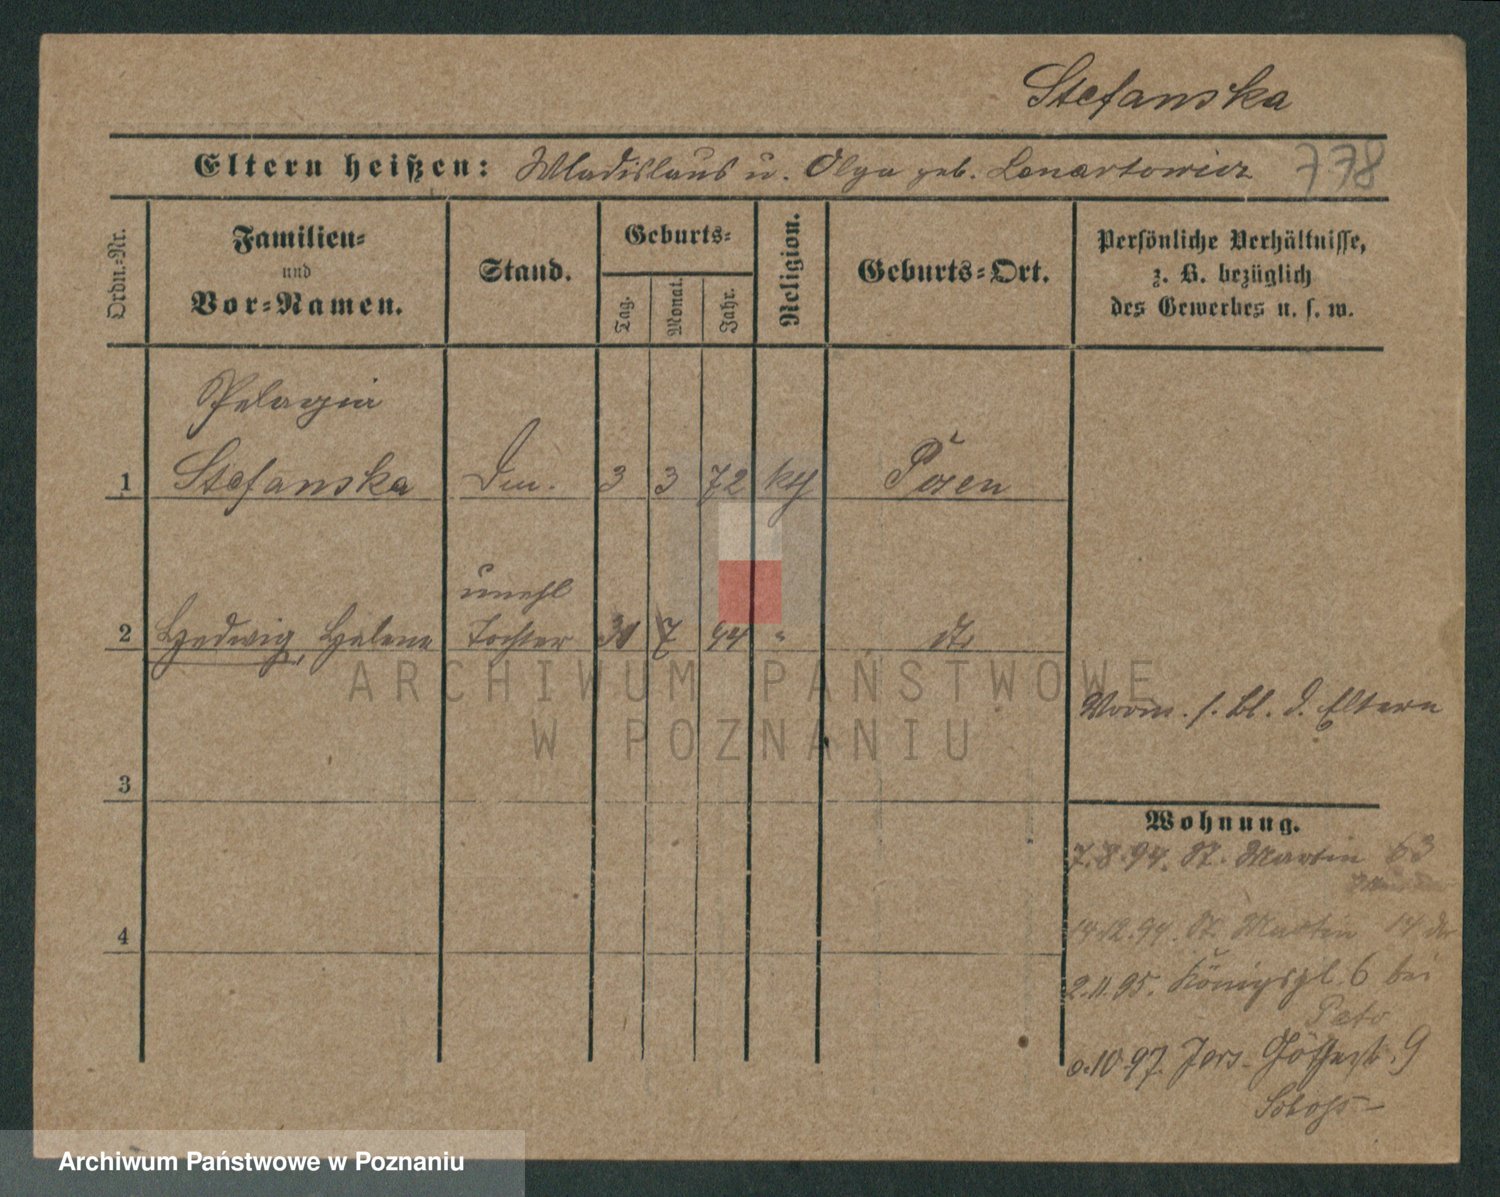 Stefanska
Eltern heißen: Wladislaus u. Olga geb. Lenartowicz 778
Ordn.-Nr.
Familien-
und
Vor-Namen.
Stand.
Geburts-
Tag.
Monat.
Jahr.
Religion.
Geburts-Ort.
Persönliche Verhältnisse,
z. B. bezüglich
des Gewerbes u. s. w.
Pelagia
1 Stefanska 3 3 72 kth Posen
unehl
2 Hedwig, Helene Tochter 30 7 94 " dto
Vorm. s. Bl. d. Eltern
3
Wohnung.
7.8.94. St. Martin 63
4
14.12.94. St. Martin 14
2.11.95. Königspl. 6 bei
10.97. Jers. 9
ARCHIWUM PAŃSTWOWE
W POZNANIU
Archiwum Państwowe w Poznaniu